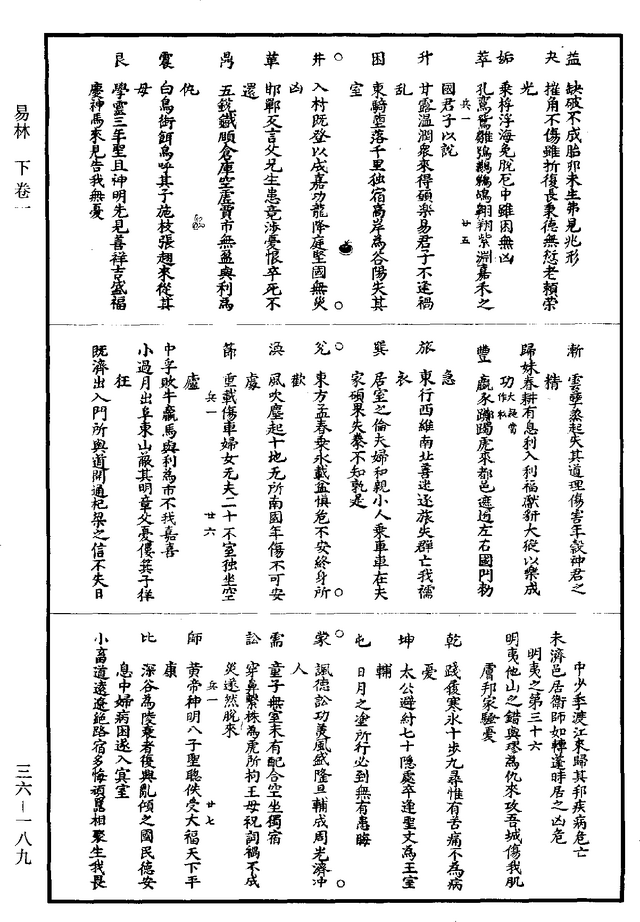 易林　下卷一
益　缺破不成胎卵未生弗見兆形
夬　摧角不傷雖折復長秉德無愆老賴榮
光
姤　乘桴浮海免脫厄中雖困無凶
兵一　廿五
萃　孔鸞鴛雛鵷鷞鵜鶘翱翔紫淵嘉禾之
國君子以說
升　甘露溫潤眾來得碩樂易君子不逢禍
亂
困　東騎墮落千里獨宿高岸為谷陽失其
室
井　入村既登以成嘉功龍降庭堅國無災
凶
革　邯鄲反言父兄生患竟涉憂恨卒死不
還
鼎　五銳鐵頤倉庫空虛賈市無盈與利為
仇
震　白鳥銜餌鳥呼其子施枝張翅來從其
母
艮　學靈三年聖且神明先見善祥吉盛福
慶神馬來見告我無憂
漸　雲孽蒸起失其道理傷害年穀神君之
精
歸妹春耕有息秋入利福獻豜大豵以樂成
功
豐　羸豕躑躅虎來都邑遮遏左右國門勑
急
旅　東行西維南北善迷逐旅失群亡我襦
衣
巽　居室之倫夫婦和親小人乘車在夫
家碩果失桼不知孰是
兌　東方孟春乘冰載盆懼危不安終身所
歡
渙　風吹塵起十地无所南國年傷不可安
處
節　重載傷車婦女无夫二十不室独坐空
兵一　廿六
廬
中孚𭶑牛羸馬與利為市不我嘉喜
小過月出阜東山蔽其明章父憂僂箕子佯
狂
既濟出入門所與道開通杞梁之信不失日
中少季渡江來歸其邦疾病危亡
未濟邑居衛師如轉蓬時居之凶危
明夷之第三十六
明夷他山之錯與璆為仇來攻吾城傷我肌
膚邦家騷憂
乾　踐履寒冰十步九尋惟有苦痛不為病
憂
坤　太公避紂七十隱處卒逢聖文為王室
輔
屯　日月之塗所行必到無有患晦
蒙　諷德訟功美風盛隆旦輔成周光濟沖
人
需　童子無室未有配合空坐獨宿
訟　穿鼻繫株為虎所拘王母祝詞禍不成
災遂然脫來
兵一　廿七
師　黃帝神明八子聖聰佚受大福天下平
康
比　深谷為陵衰者復興亂傾之國民德安
息中婦病困遂入冥室
小畜道遠遼絕路宿多悔頑嚚相聚生我畏
三六－一八九